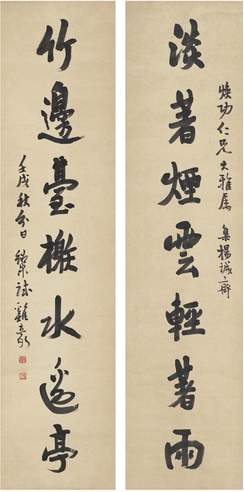 淡著煙雲輕著雨
煥功仁兄大雅屬 集楊誠齋
竹邊臺榭水邊亭
壬戌秋分日